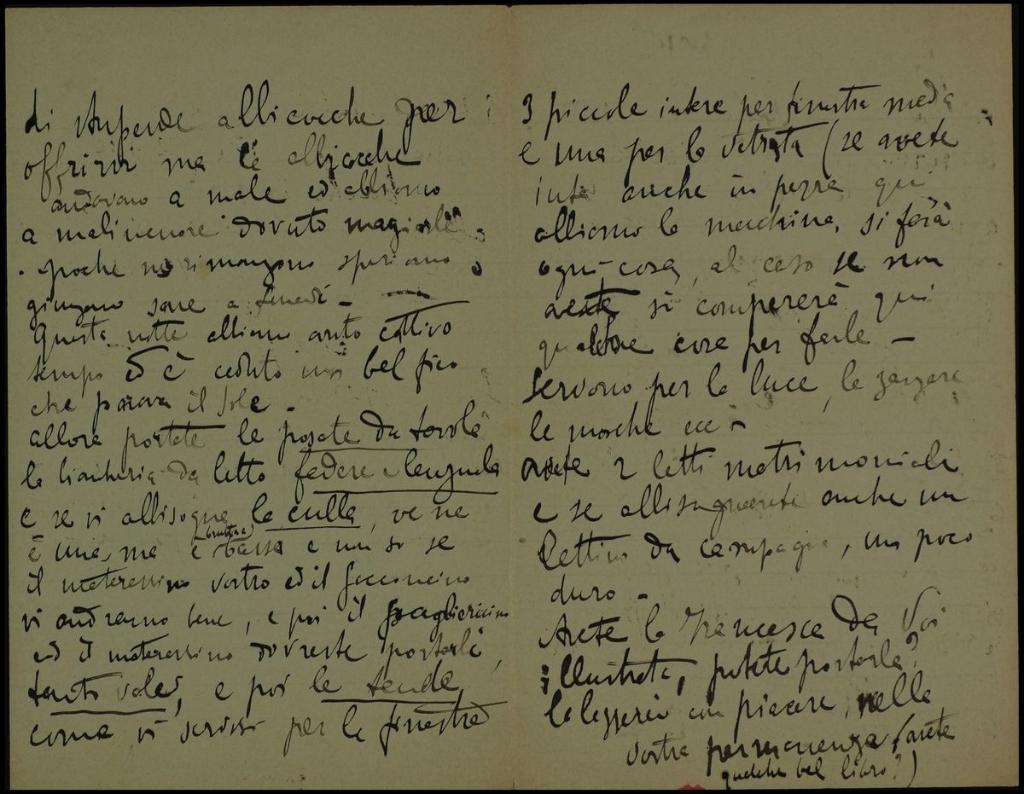 di stupende albicocche per
offrirvi ma le albicocche
andavano a male ed abbiamo
a malincuore dovuto mangiarle
poche ne rimangono speriamo
giungano sane a lunedì -
Questa notte abbiamo avuto cattivo
tempo ed è caduto un bel fico
che parava il sole -
allora portate le posate da tavola
la biancheria da letto federe e lenzuola
e se vi abbisogna la culla, ve ne
è una, ma è bassa e non so se
il materassino vostro ed il sacconcino
vi andranno bene, e poi il pagliericcino
ed il materassino dovreste portarlo,
tanto vale, e poi le tende
come vi scrissi per le finestre
3 piccole intere per finestra media
e una per la vetrata (se avete
anche in pezza qui
abbiamo la macchina, si farà
ogni cosa, al caso se non
avete si comprerà qui
qualche cosa per farle -
servono per la luce, le zanzare
le mosche ecc -
avete 2 letti matrimoniali
e se abbisognerete anche un
lettino da campagna, un poco
duro -
Avete la Francesca da Voi
illustrata, potete portarla?
la leggerei con piacere, nella
vostra permanenza (avete
qualche bel libro?)